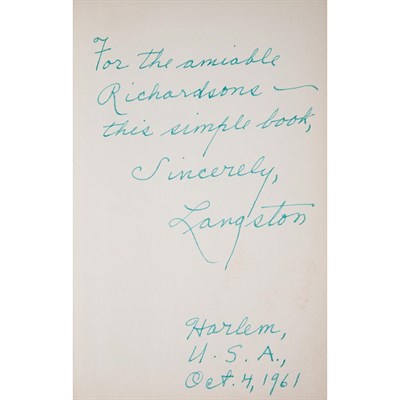 For the amiable
Richardsons —
this simple book,
Sincerely,
Langston
Harlem,
U.S.A.,
Oct. 4, 1961